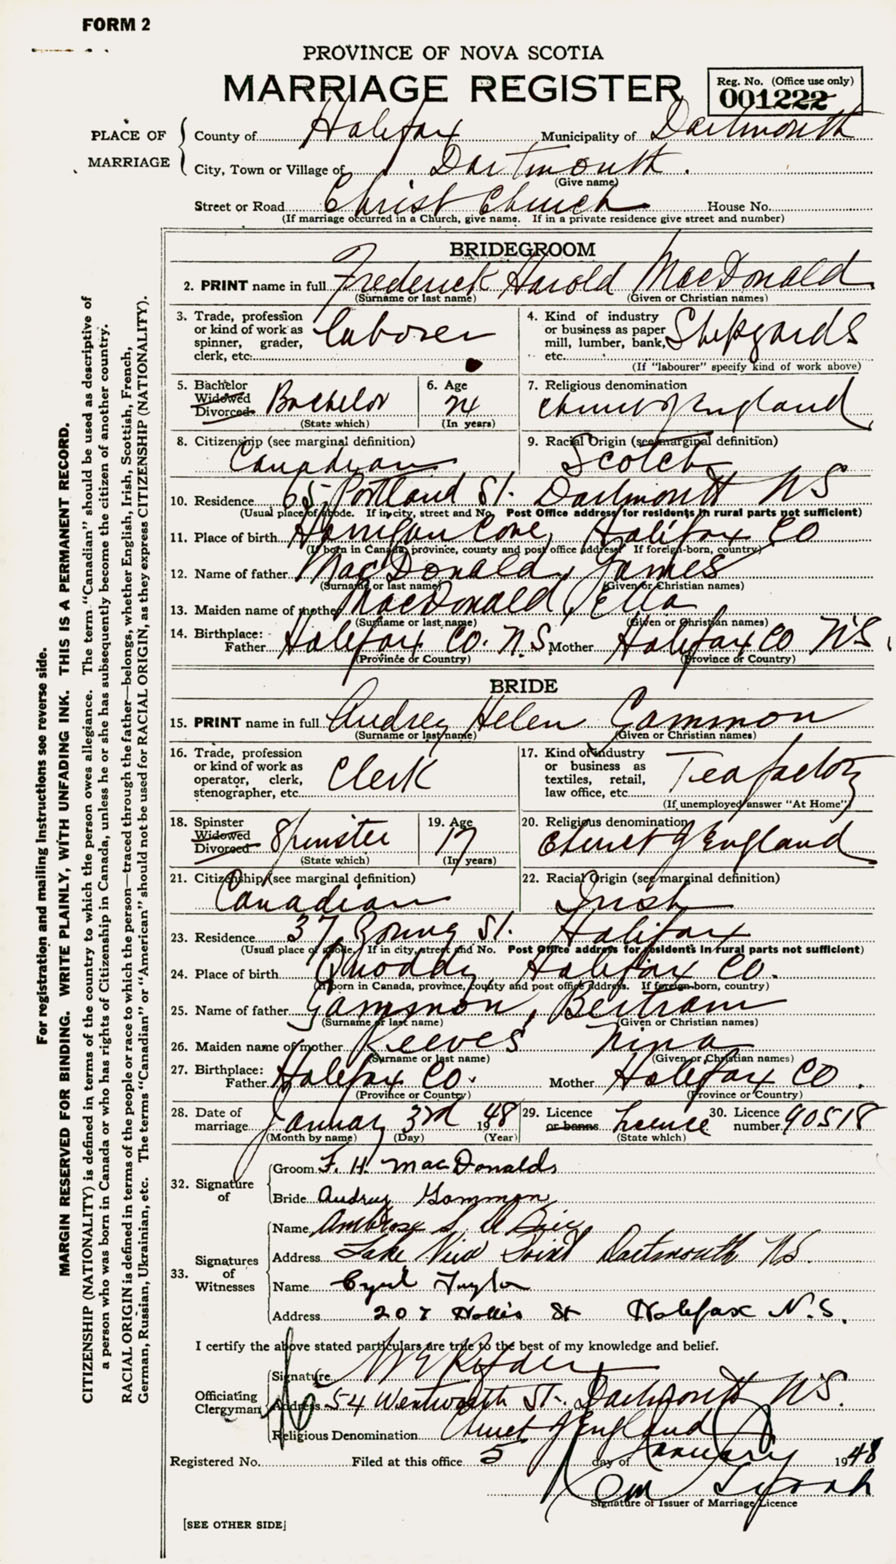 FORM 2
PROVINCE OF NOVA SCOTIA
MARRIAGE REGISTER
Reg. No. (Office use only)
001222
PLACE OF MARRIAGE
County of Halifax Municipality of Dartmouth
City, Town or Village of Dartmouth.
(Give name)
Street or Road Christ Church House No.
(If marriage occurred in a Church, give name. If in a private residence give street and number)
BRIDEGROOM
2. PRINT name in full Frederick Harold MacDonald
(Surname or last name) (Given or Christian names)
3. Trade, profession or kind of work as spinner, grader, clerk, etc. laborer
4. Kind of industry or business as paper mill, lumber, bank, etc. Shipyards
(If "labourer" specify kind of work above)
5. Bachelor Widowed Divorced Bachelor
(State which)
6. Age 24
(In years)
7. Religious denomination Church of England
8. Citizenship (see marginal definition) Canadian
9. Racial Origin (see marginal definition) Scotch
10. Residence 65 Portland St. Dartmouth NS
(Usual place of abode. If in city, street and No. Post Office address for residents in rural parts not sufficient)
11. Place of birth Harrigan Cove, Halifax Co
(If born in Canada, province, county and post office address. If foreign-born, country)
12. Name of father MacDonald, James
(Surname or last name) (Given or Christian names)
13. Maiden name of mother MacDonald, Ella
(Surname or last name) (Given or Christian names)
14. Birthplace: Father Halifax Co. N.S. Mother Halifax Co NS.
(Province or Country) (Province or Country)
BRIDE
15. PRINT name in full Audrey Helen Gammon
(Surname or last name) (Given or Christian names)
16. Trade, profession or kind of work as operator, clerk, stenographer, etc. Clerk
17. Kind of industry or business as textiles, retail, law office, etc. Tea factory
(If unemployed answer "At Home")
18. Spinster Widowed Divorced Spinster
(State which)
19. Age 17
(In years)
20. Religious denomination Church of England
21. Citizenship (see marginal definition) Canadian
22. Racial Origin (see marginal definition) Irish
23. Residence 37 Young St. Halifax
(Usual place of abode. If in city, street and No. Post Office address for residents in rural parts not sufficient)
24. Place of birth Quoddy Halifax Co.
(If born in Canada, province, county and post office address. If foreign-born, country)
25. Name of father Gammon, Bertram
(Surname or last name) (Given or Christian names)
26. Maiden name of mother Reeves Nina
(Surname or last name) (Given or Christian names)
27. Birthplace: Father Halifax Co. Mother Halifax Co.
(Province or Country) (Province or Country)
28. Date of marriage January 3rd 1948
(Month by name) (Day) (Year)
29. Licence or banns licence
(State which)
30. Licence number 90518
32. Signature of
Groom F. H. MacDonald
Bride Audrey Gammon
33. Signatures of Witnesses
Name Ambrose
Address Lake View Point Dartmouth NS.
Name Cyril Taylor
Address 207 Hollis St Halifax N.S.
I certify the above stated particulars are true to the best of my knowledge and belief.
Officiating Clergyman
Signature
Address 54 Wentworth St. Dartmouth NS.
Religious Denomination Church of England
Registered No. Filed at this office 5 day of January 1948
Signature of Issuer of Marriage Licence
[SEE OTHER SIDE]
For registration and mailing instructions see reverse side.
MARGIN RESERVED FOR BINDING. WRITE PLAINLY, WITH UNFADING INK. THIS IS A PERMANENT RECORD.
CITIZENSHIP (NATIONALITY) is defined in terms of the country to which the person owes allegiance. The term "Canadian" should be used as descriptive of
a person who was born in Canada or who has rights of Citizenship in Canada, unless he or she has subsequently become the citizen of another country.
RACIAL ORIGIN is defined in terms of the people or race to which the person—traced through the father—belongs, whether English, Irish, Scottish, French,
German, Russian, Ukrainian, etc. The terms "Canadian" or "American" should not be used for RACIAL ORIGIN, as they express CITIZENSHIP (NATIONALITY).